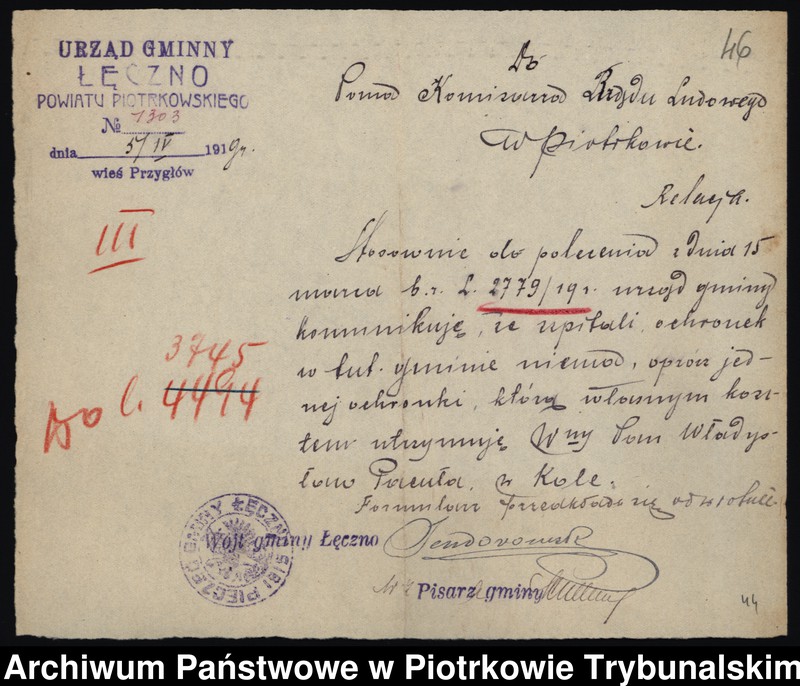 46
URZĄD GMINNY
ŁĘCZNO
POWIATU PIOTRKOWSKIEGO
№ 1303
dnia 5/IV 1919 r.
wieś Przygłów
Do
Pana Komisarza Rządu Ludowego
w Piotrkowie.
Relacya.
III
Stosownie do polecenia z dnia 15
marca b.r. L. 2779/19 r. urząd gminy
komunikuję, że szpitali, ochronek
w tut. gminie niema, oprócz jed-
nej ochronki, którą własnym kosz-
tem utrzymuję Wny Pan Władys-
ław Pacuła, w Kole.
Formularz przedkłada się odwrotnie.
3745
Do l. 4494
Wójt gminy Łęczno
Pisarz gminy
PIECZĘĆ GMINY ŁĘCZNO
44
Archiwum Państwowe w Piotrkowie Trybunalskim